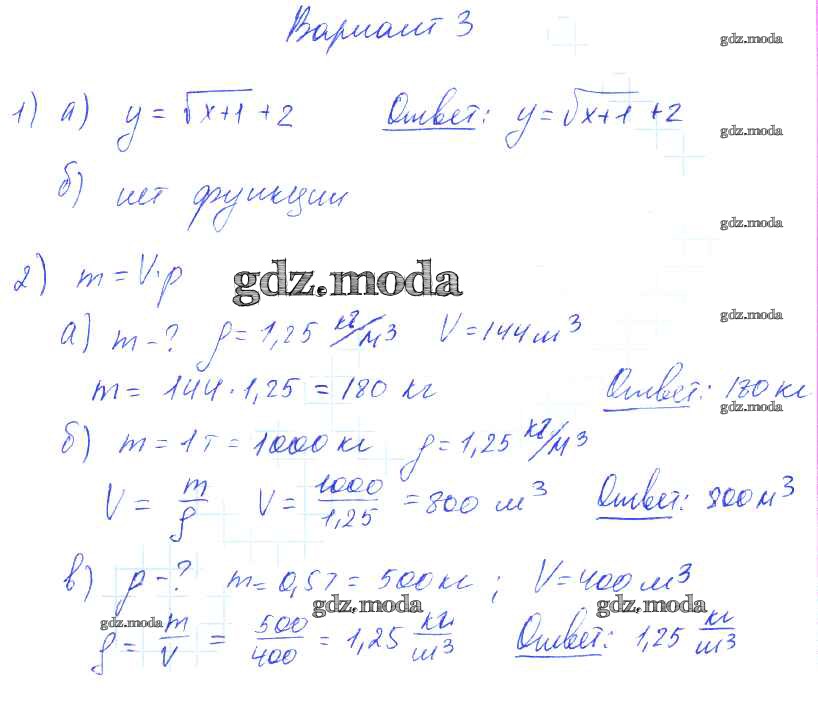 Вариант 3
gdz.moda
1) а) y = √x+1 + 2 Ответ: y = √x+1 + 2
gdz.moda
б) нет функции
gdz.moda
2) m = V·ρ
gdz.moda
gdz.moda
а) m - ? ρ = 1,25 кг/м³ V = 144 м³
m = 144 · 1,25 = 180 кг Ответ: 180 кг
gdz.moda
б) m = 1т = 1000 кг ρ = 1,25 кг/м³
V = m/ρ V = 1000/1,25 = 800 м³ Ответ: 800 м³
в) ρ - ? m = 0,5т = 500 кг ; V = 400 м³
gdz.moda gdz.moda gdz.moda
ρ = m/V = 500/400 = 1,25 кг/м³ Ответ: 1,25 кг/м³